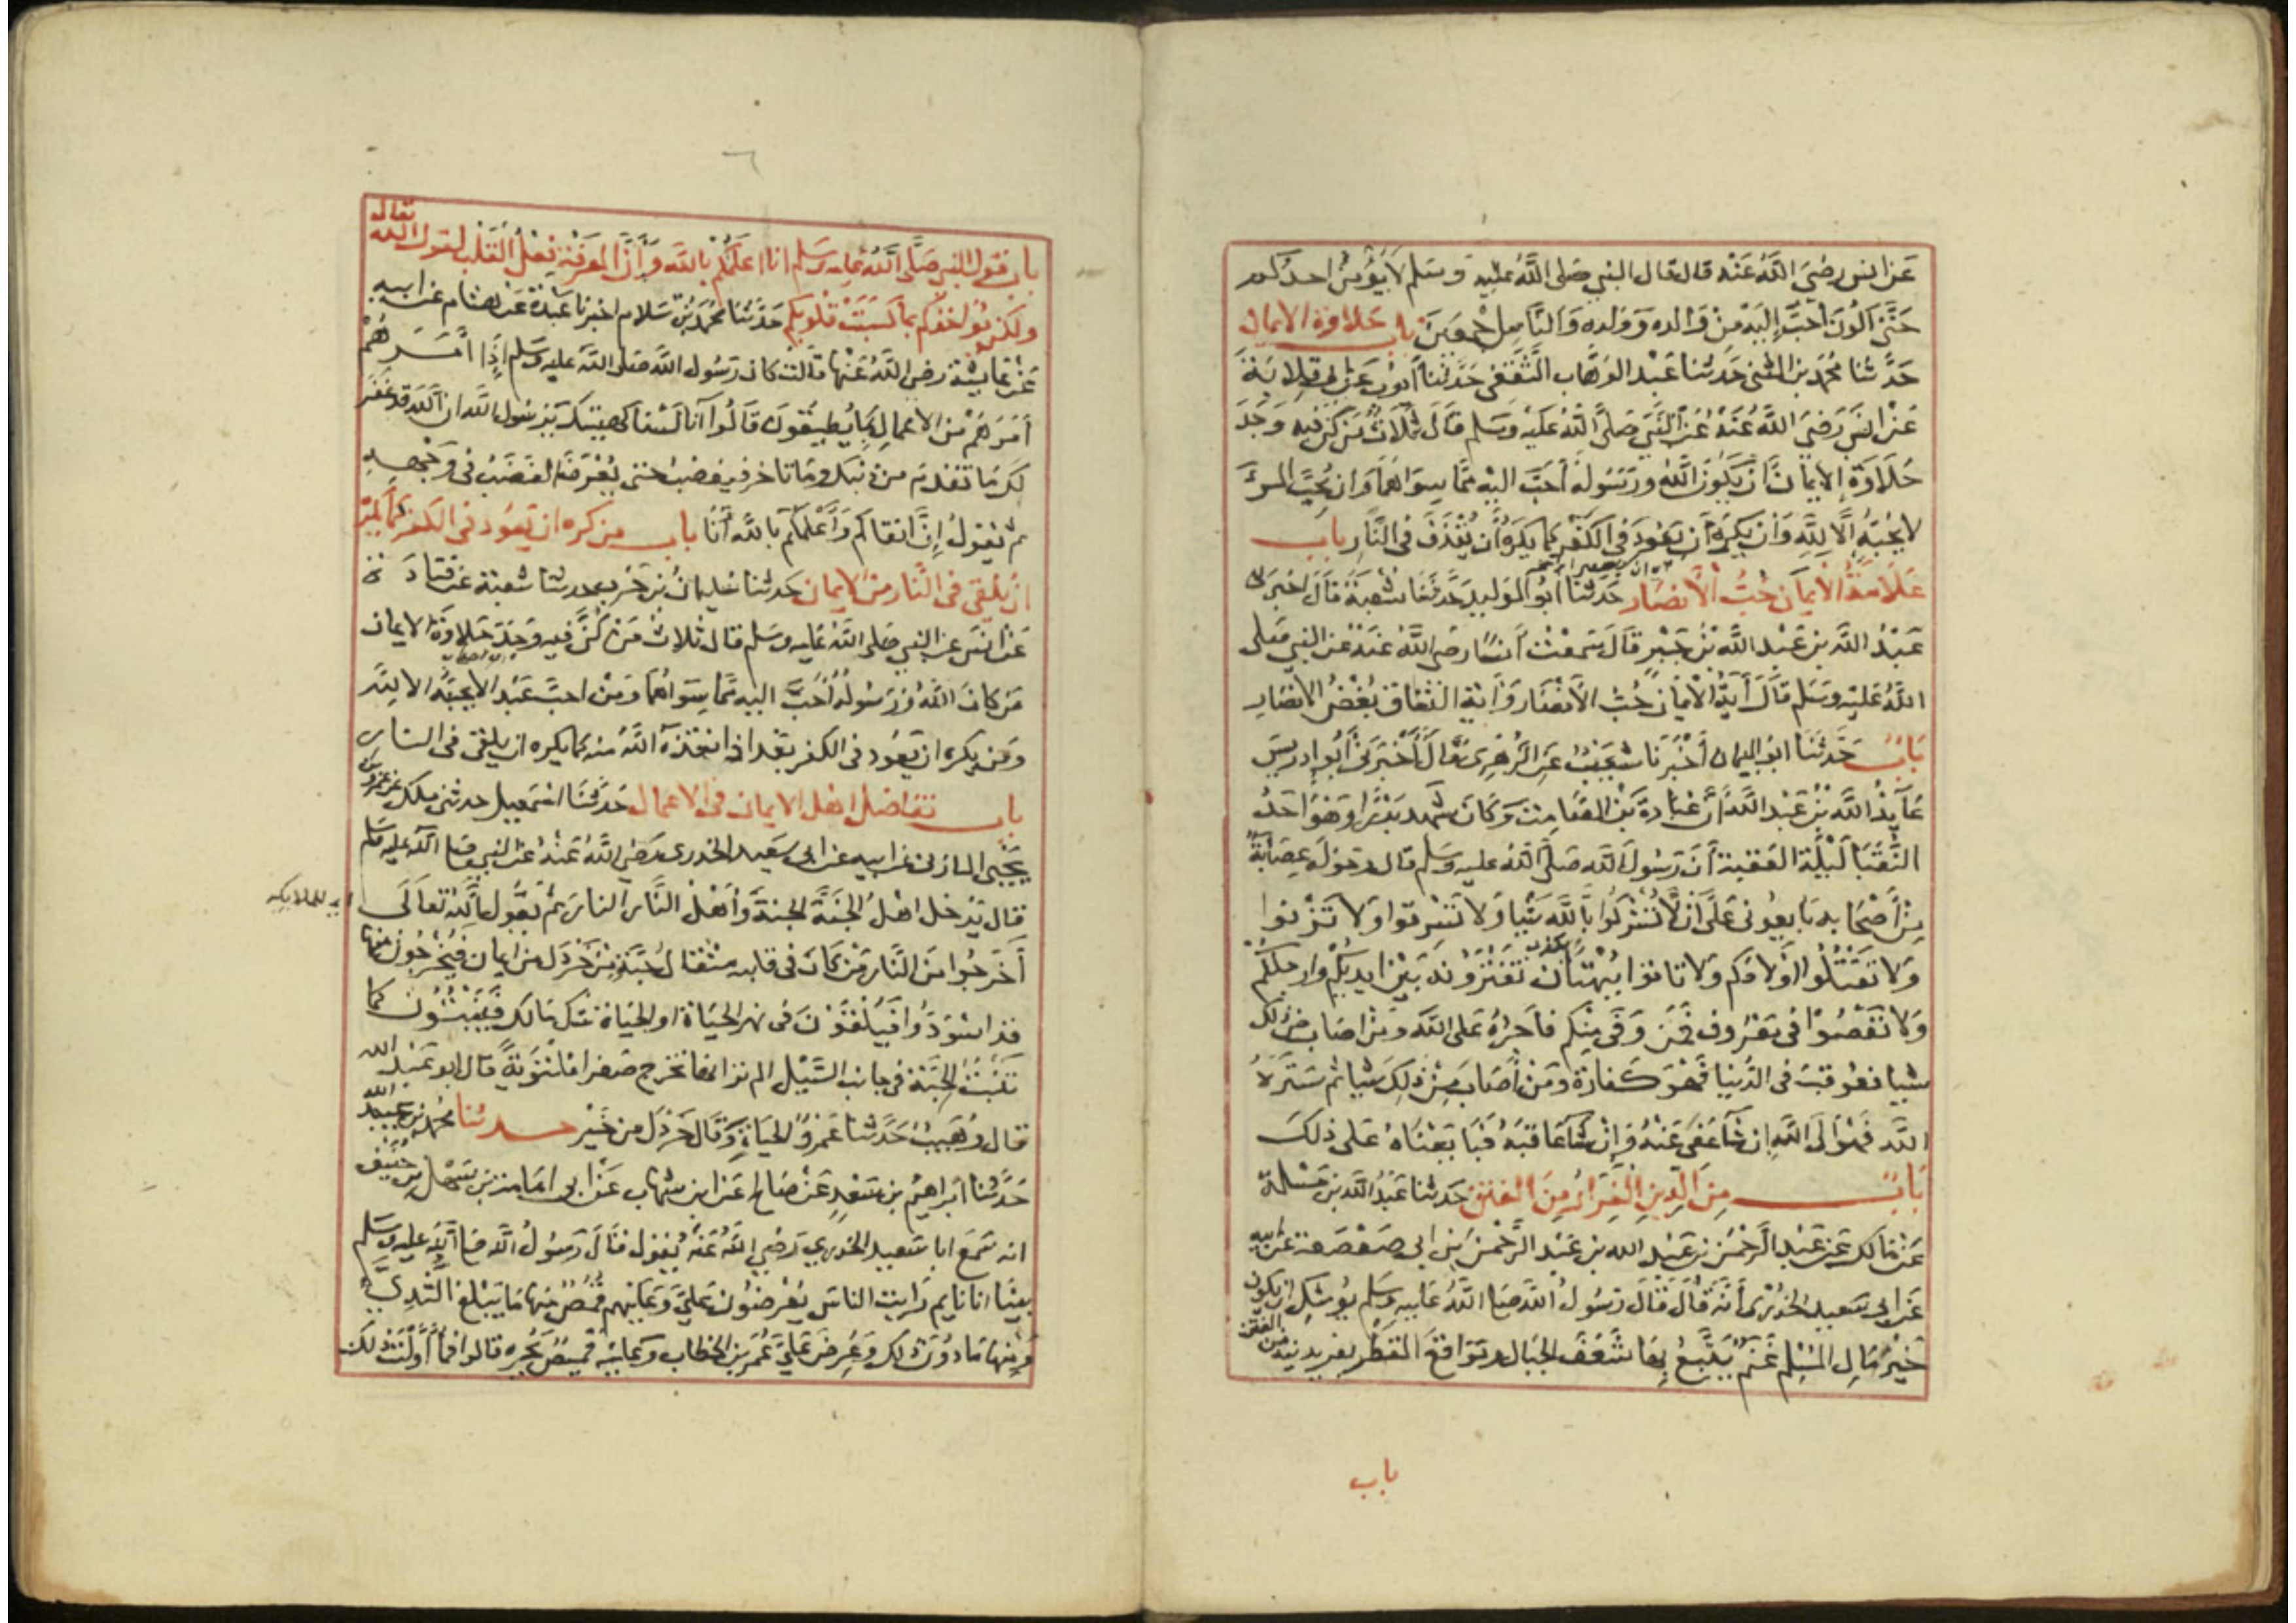 عن انس رضي الله عنه قال قال النبي صلى الله عليه وسلم لا يؤمن احدكم
حتى اكون احب اليه من والده وولده والناس اجمعين باب حلاوة الايمان
حدثنا محمد بن المثنى حدثنا عبد الوهاب الثقفي حدثنا ايوب عن ابي قلابة
عن انس رضي الله عنه عن النبي صلى الله عليه وسلم قال ثلاث من كن فيه وجد
حلاوة الايمان ان يكون الله ورسوله احب اليه مما سواهما وان يحب المرء
لا يحبه الا لله وان يكره ان يعود في الكفر كما يكره ان يقذف في النار باب
علامة الايمان حب الانصار حدثنا ابو الوليد حدثنا شعبة قال اخبرني
عبد الله بن عبد الله بن جبر قال سمعت انسا رضي الله عنه عن النبي صلى
الله عليه وسلم قال آية الايمان حب الانصار وآية النفاق بغض الانصار
باب حدثنا ابو اليمان اخبرنا شعيب عن الزهري قال اخبرني ابو ادريس
عايذ الله بن عبد الله ان عبادة بن الصامت وكان شهد بدرا وهو احد
النقبا ليلة العقبة ان رسول الله صلى الله عليه وسلم قال وحوله عصابة
من اصحابه بايعوني على ان لا تشركوا بالله شيا ولا تسرقوا ولا تزنوا
ولا تقتلوا اولادكم ولا تاتوا ببهتان تفترونه بين ايديكم وارجلكم
ولا تعصوا في معروف فمن وفى منكم فاجره على الله ومن اصاب من ذلك
شيا فعوقب في الدنيا فهو كفارة ومن اصاب من ذلك شيا ثم ستره
الله فهو الى الله ان شآ عفى عنه وان شآ عاقبه فبايعناه على ذلك
باب من الدين الفرار من الفتن حدثنا عبد الله بن مسلمة
عن مالك عن عبد الرحمن بن عبد الله بن عبد الرحمن بن ابي صعصعة عن ابيه
عن ابي سعيد الخدري انه قال قال رسول الله صلى الله عليه وسلم يوشك ان يكون
خير مال المسلم غنم يتبع بها شعف الجبال ومواقع القطر يفر بدينه من الفتن
باب
٦
باب قول النبي صلى الله عليه وسلم انا اعلمكم بالله وان المعرفة فعل القلب لقول الله تعالى
ولكن يواخذكم بما كسبت قلوبكم حدثنا محمد بن سلام اخبرنا عبدة عن هشام عن ابيه
عن عايشة رضي الله عنها قالت كان رسول الله صلى الله عليه وسلم اذا امرهم
امرهم من الاعمال بما يطيقون قالوا انا لسنا كهيئتك يا رسول الله ان الله قد غفر
لك ما تقدم من ذنبك وما تاخر فيغضب حتى يعرف الغضب في وجهه
ثم يقول ان اتقاكم واعلمكم بالله انا باب من كره ان يعود في الكفر كما يكره
ان يلقى في النار من الايمان حدثنا سليمان بن حرب حدثنا شعبة عن قتادة
عن انس عن النبي صلى الله عليه وسلم قال ثلاث من كن فيه وجد حلاوة الايمان
من كان الله ورسوله احب اليه مما سواهما ومن احب عبدا لا يحبه الا لله
ومن يكره ان يعود في الكفر بعد اذ انقذه الله منه كما يكره ان يلقى في النار
باب تفاضل اهل الايمان في الاعمال حدثنا اسمعيل حدثني ملك عن عمرو بن
يحيى المازني عن ابيه عن ابي سعيد الخدري رضي الله عنه عن النبي صلى الله عليه وسلم
قال يدخل اهل الجنة الجنة واهل النار النار ثم يقول الله تعالى
اي للملايكة
اخرجوا من النار من كان في قلبه مثقال حبة من خردل من ايمان فيخرجون منها
قد اسودوا فيلقون في نهر الحياة او الحياة شك مالك فينبتون كما
تنبت الحبة في جانب السيل الم تر انها تخرج صفرا ملتوية قال ابو عبد الله
قال وهيب حدثنا عمرو الحياة وقال خردل من خير حدثنا محمد بن عبيد الله
حدثنا ابراهيم بن سعد عن صالح عن ابن شهاب عن ابي امامة بن سهل بن حنيف
انه سمع ابا سعيد الخدري رضي الله عنه يقول قال رسول الله صلى الله عليه وسلم
بينا انا نايم رايت الناس يعرضون علي وعليهم قمص منها ما يبلغ الثدي
ومنها ما دون ذلك وعرض علي عمر بن الخطاب وعليه قميص يجره قالوا فما اولت ذلك